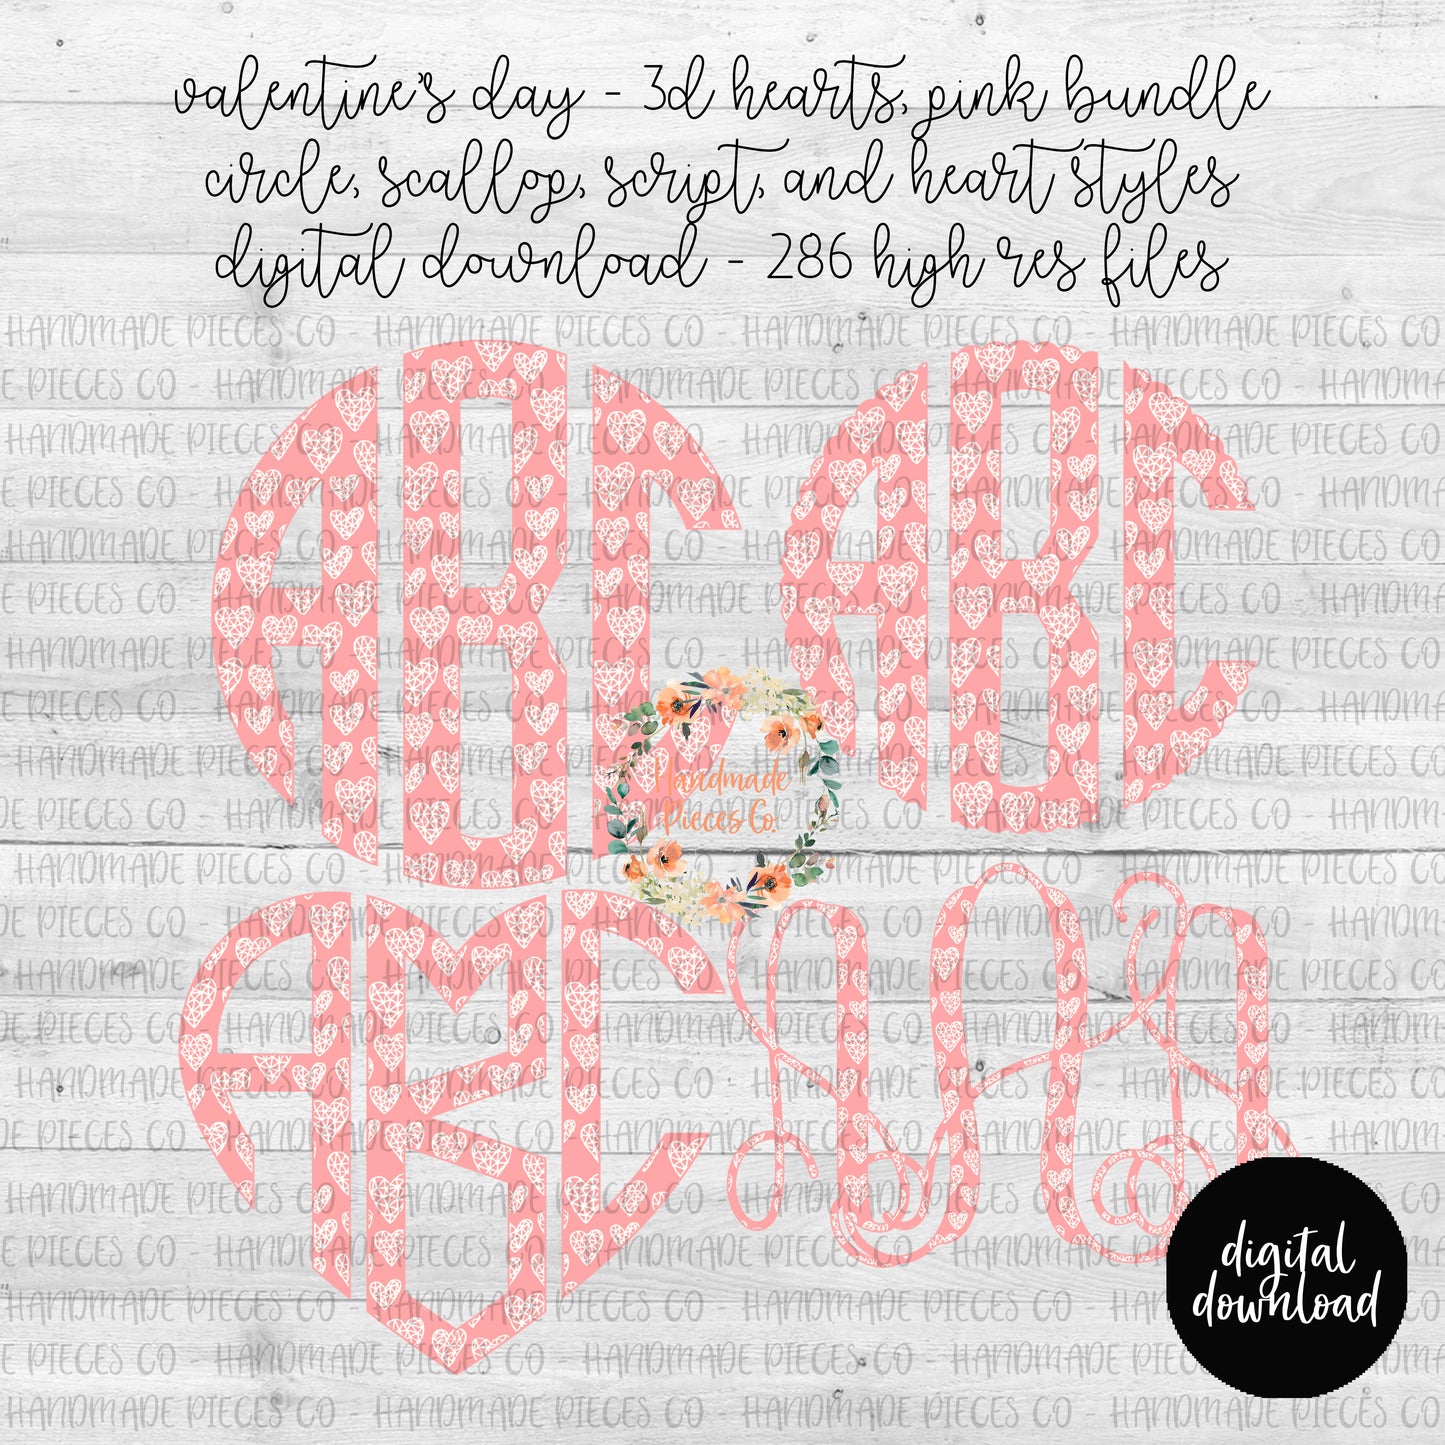 valentine's day - 3d hearts, pink bundle
circle, scallop, script, and heart styles
digital download - 286 high res files
HANDMADE PIECES CO - HANDMADE PIECES CO - HANDMADE PIECES CO - HANDMADE PIECES CO
ABC
ABC
Handmade
Pieces Co.
ABC
digital
download